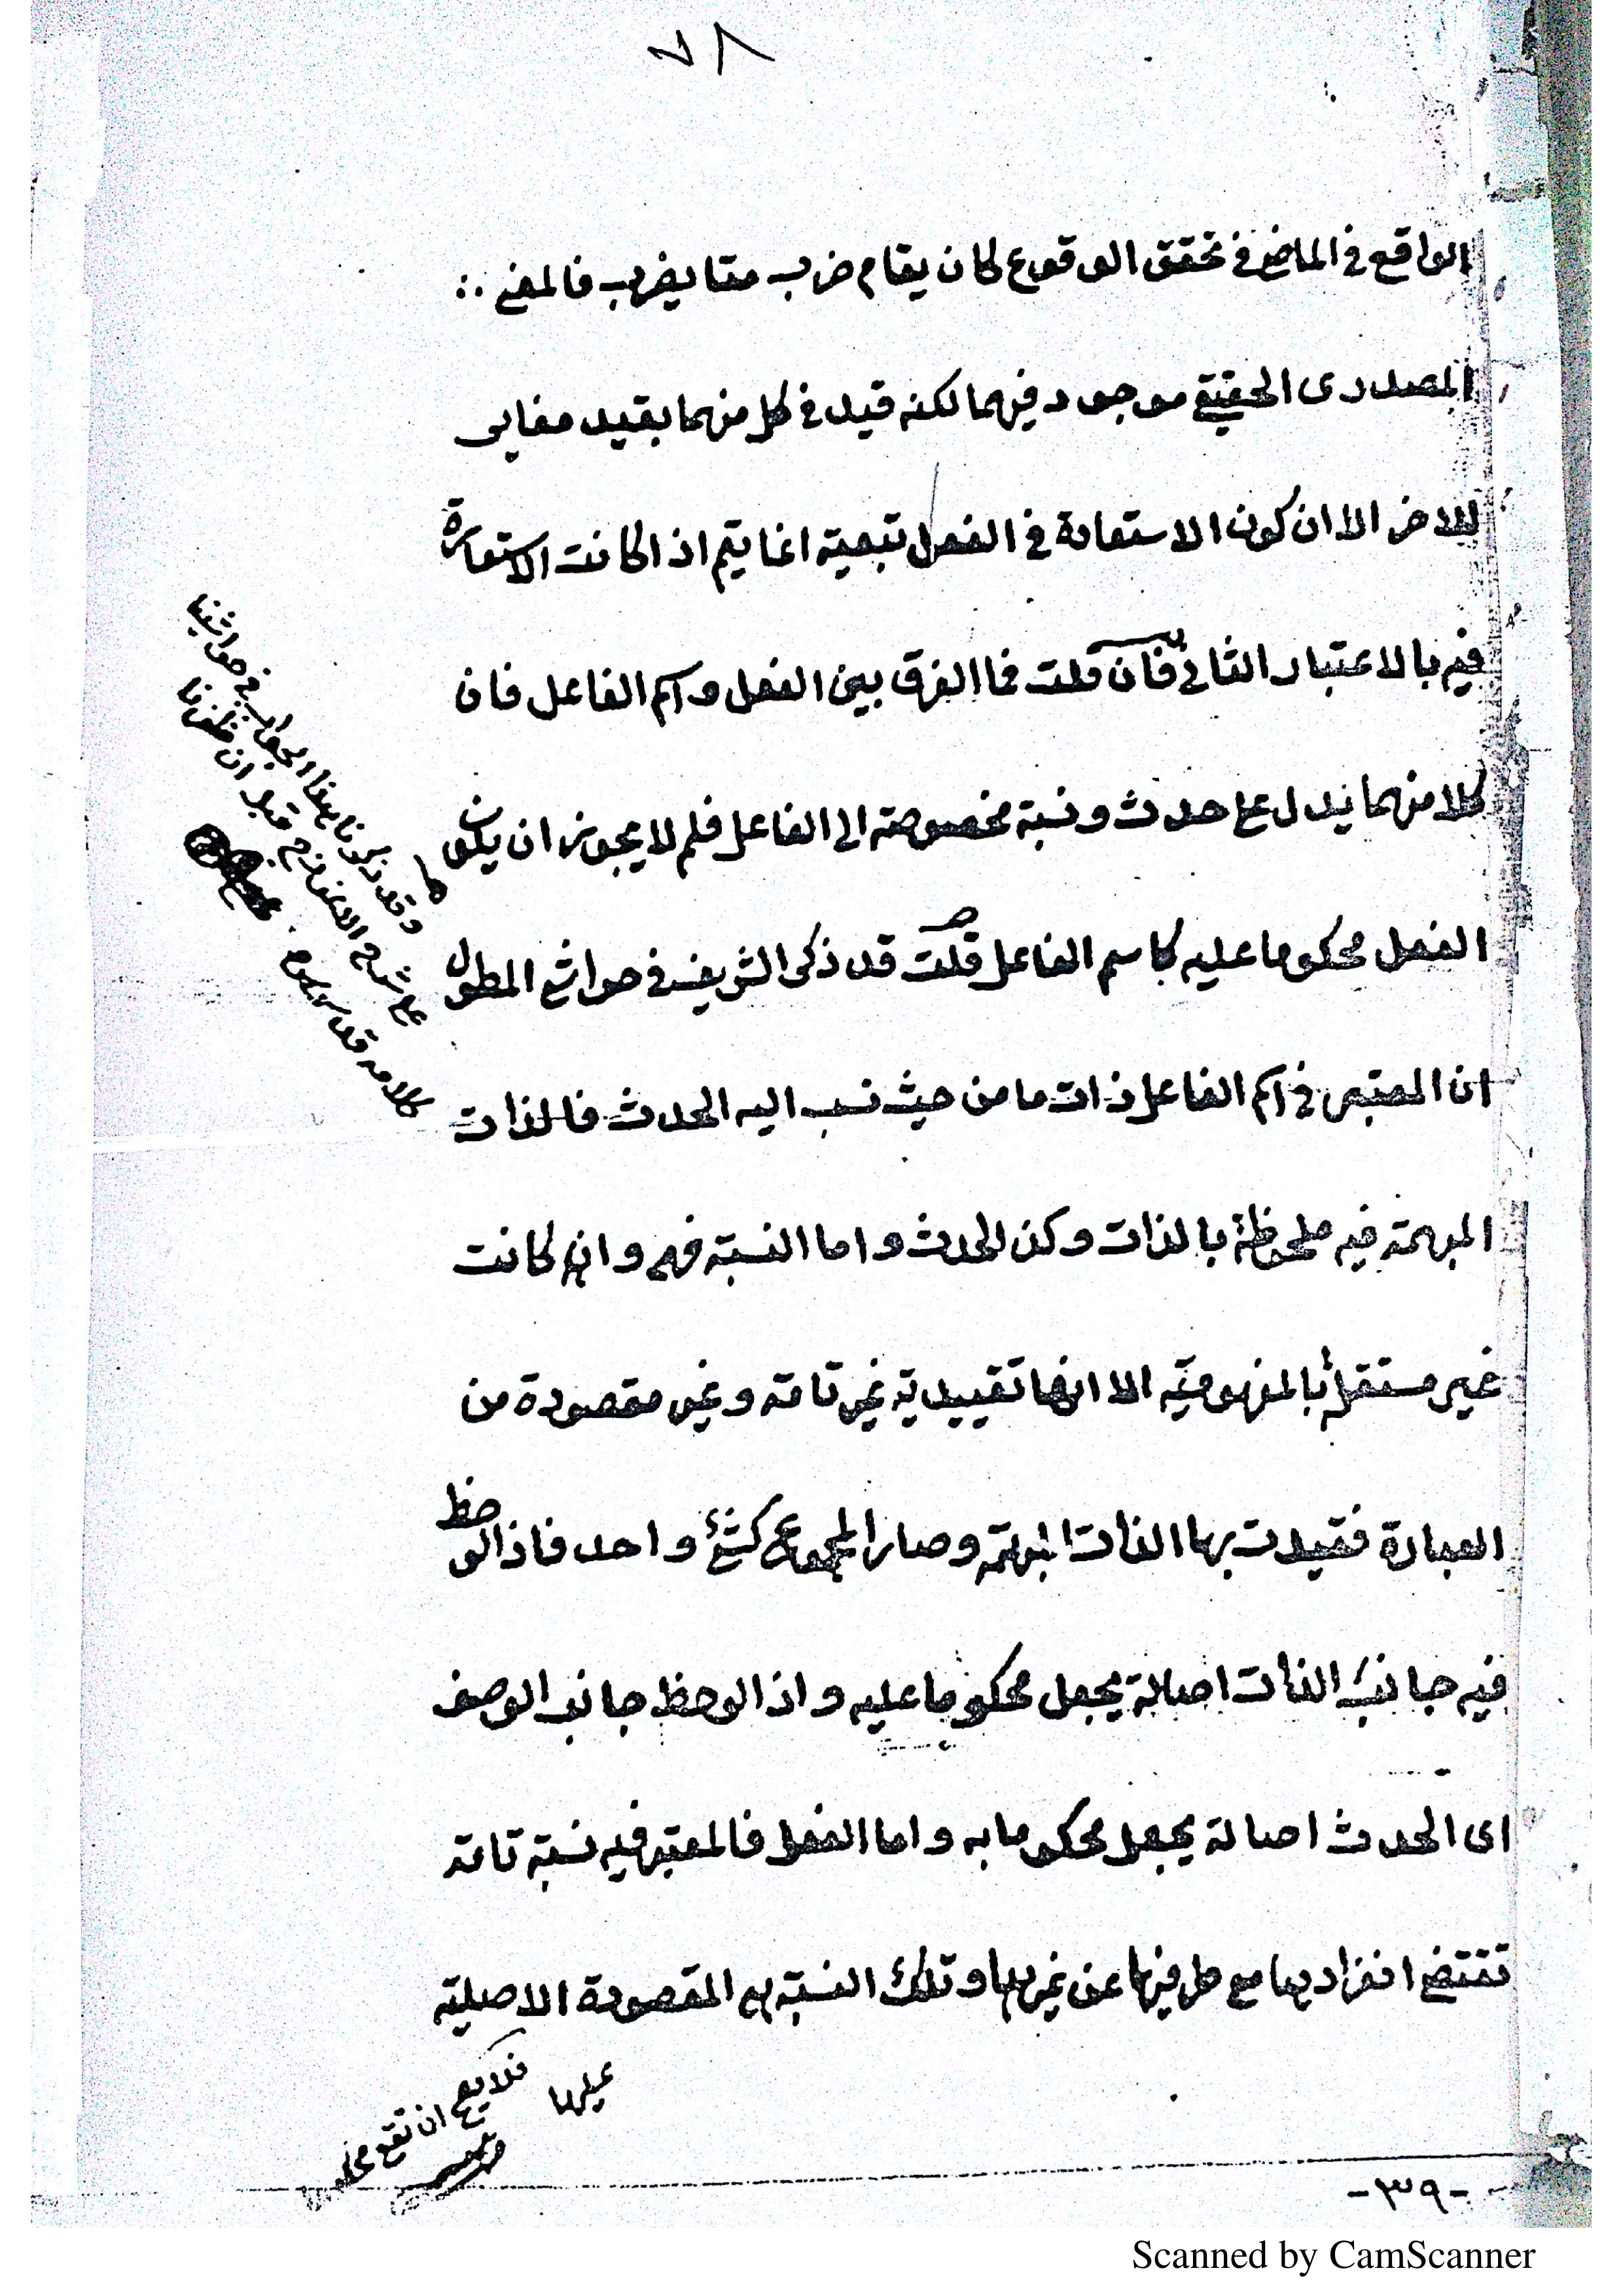 ٧٨
الواقع في الماضي في تحقق الوقوع كان يقام ضرب مقا يضرب فالمعنى
المصدرى الحقيقي موجود فيهما لكنه قيد في كل منهما بقيد مغاير
للاخر الا ان كون الاستعارة في الفعل تبعية انما يتم اذا كانت الاستعارة
فيه بالاعتبار الثاني فان قلت فما الفرق بين الفعل واسم الفاعل فان
كلا منهما يدل على حدث ونسبة مخصوصة الى الفاعل فلم لا يجوز ان يكون
الفعل محكوما عليه كاسم الفاعل قلت قد ذكر الشريف في حواشي المطول
ان المعتبر في اسم الفاعل ذات ما من حيث نسب اليه الحدث فالذات
المبهمة فيه ملحوظة بالذات وكذا الحدث واما النسبة فهي وان كانت
غير مستقلة بالمفهومية الا انها تقييدية غير تامة وغير مقصودة من
العبارة فقيدت بها الذات المبهمة وصار المجموع كشئ واحد فاذا لوحظ
فيه جانب الذات اصالة يجعل محكوما عليه واذا لوحظ جانب الوصف
اى الحدث اصالة يجعل محكوما به واما الفعل فالمعتبر فيه نسبة تامة
تقتضي انفرادها مع طرفيها عن غيرها وتلك النسبة هي المقصودة الاصلية
عليها
فلا يصح ان تقع
-٣٩-
Scanned by CamScanner